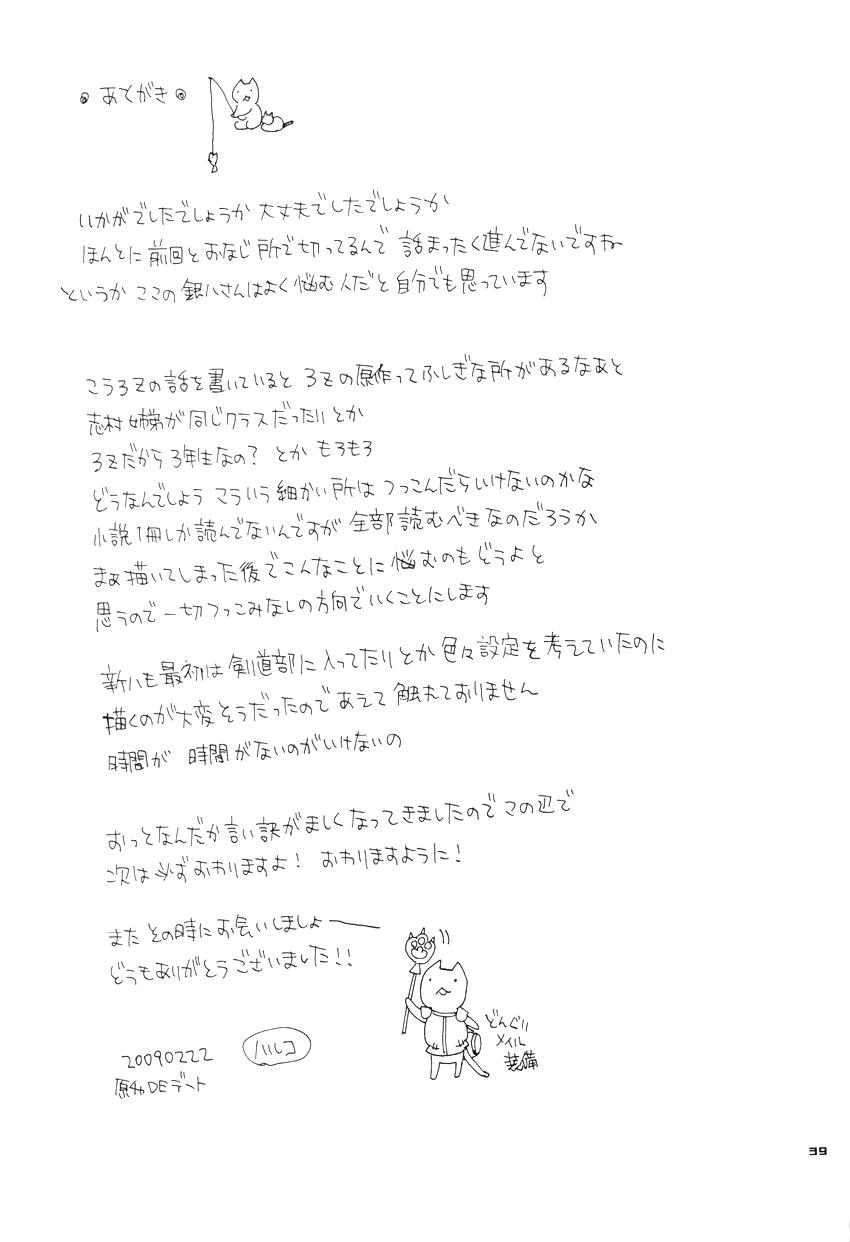 ◎ あとがき ◎
いかがでしたでしょうか 大丈夫でしたでしょうか
ほんとに前回とおなじ所で切ってるんで 話まったく進んでないですねー
というか ここの銀八さんはよく悩む人だと自分でも思っています
こう3Zの話を書いていると 3Zの原作ってふしぎな所があるなあと
志村姉弟が同じクラスだったりとか
3Zだから3年生なの? とか もろもろ
どうなんでしょう こういう細かい所は つっこんだらいけないのかな
小説1冊しか読んでないんですが 全部読むべきなのだろうか
まぁ描いてしまった後でこんなことに悩むのもどうよと
思うので一切つっこみなしの方向でいくことにします
新八も最初は剣道部に入ってたりとか色々設定を考えていたのに
描くのが大変そうだったのであえて触れておりません
時間が 時間がないのがいけないの
おっとなんだか言い訳がましくなってきましたのでこの辺で
次は必ずおわりますよ! おわりますように!
また その時にお会いしましょー
どうもありがとうございました!!
どんぐり
メイル
装備
20090222
ハルコ
原チャDEデート
39